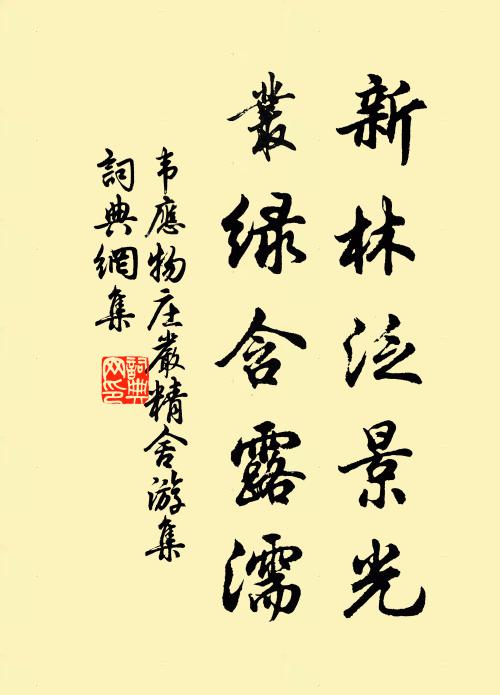 新林泛景光
叢绿含露濡
韦應物庄嚴精舍游集
詞典網集
詞典
网印